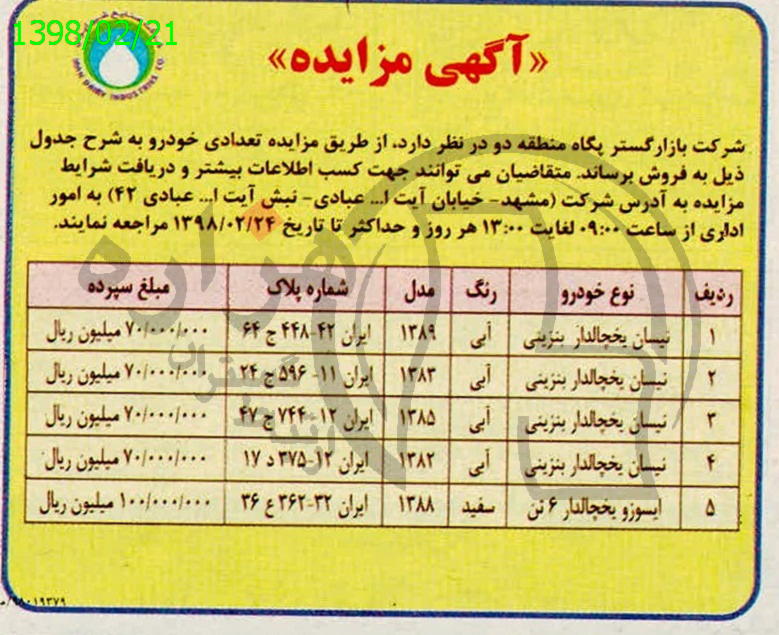 1398/02/21
IRAN DAIRY INDUSTRIES CO.
«آگهی مزایده»
شرکت بازارگستر پگاه منطقه دو در نظر دارد، از طریق مزایده تعدادی خودرو به شرح جدول
ذیل به فروش برساند. متقاضیان می توانند جهت کسب اطلاعات بیشتر و دریافت شرایط
مزایده به آدرس شرکت (مشهد- خیابان آیت ا... عبادی- نبش آیت ا... عبادی ۴۲) به امور
اداری از ساعت ۰۹:۰۰ لغایت ۱۳:۰۰ هر روز و حداکثر تا تاریخ ۱۳۹۸/۰۲/۲۴ مراجعه نمایند.
ردیف نوع خودرو رنگ مدل شماره پلاک مبلغ سپرده
۱ نیسان یخچالدار بنزینی آبی ۱۳۸۹ ایران ۴۲-۴۴۸ ج ۶۴ ۷۰/۰۰۰/۰۰۰ میلیون ریال
۲ نیسان یخچالدار بنزینی آبی ۱۳۸۳ ایران ۱۱-۵۹۶ ج ۲۴ ۷۰/۰۰۰/۰۰۰ میلیون ریال
۳ نیسان یخچالدار بنزینی آبی ۱۳۸۵ ایران ۱۲-۷۴۴ ج ۴۷ ۷۰/۰۰۰/۰۰۰ میلیون ریال
۴ نیسان یخچالدار بنزینی آبی ۱۳۸۲ ایران ۱۲-۳۷۵ د ۱۷ ۷۰/۰۰۰/۰۰۰ میلیون ریال
۵ ایسوزو یخچالدار ۶ تن سفید ۱۳۸۸ ایران ۳۲-۳۶۲ ع ۳۶ ۱۰۰/۰۰۰/۰۰۰ میلیون ریال
هزاره
۹۸۰۱۹۳۷۹